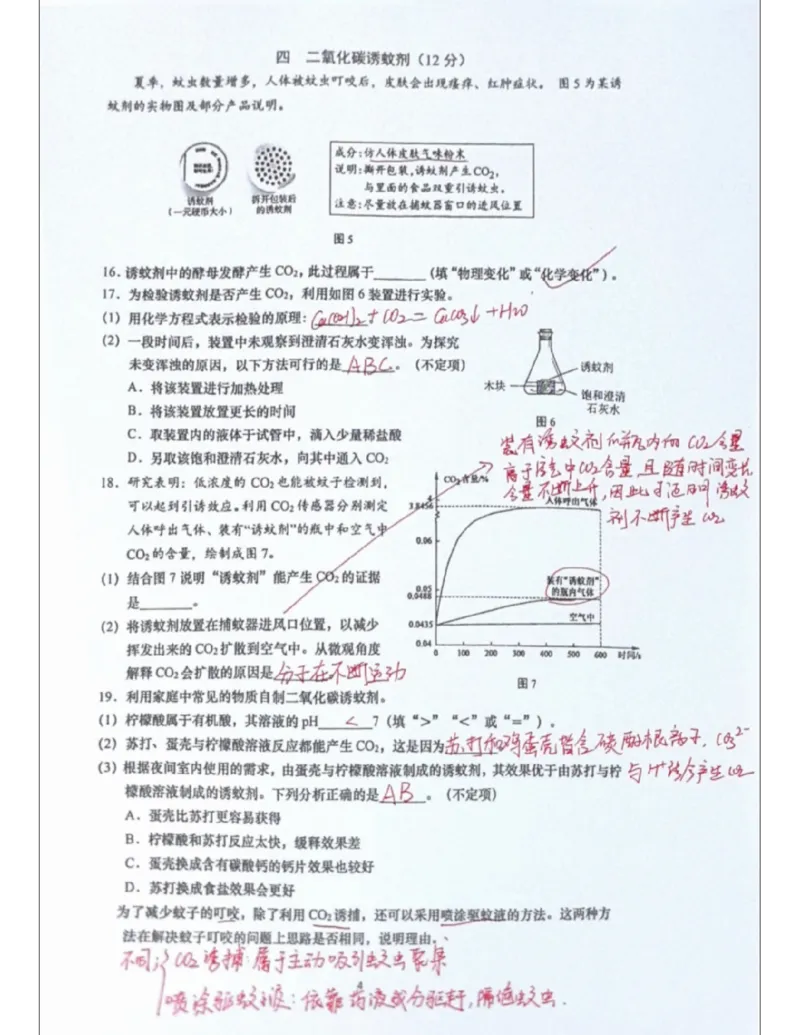 四 二氧化碳诱蚊剂（12 分）
夏季，蚊虫数量增多，人体被蚊虫叮咬后，皮肤会出现瘙痒、红肿症状。 图 5 为某诱
蚊剂的实物图及部分产品说明。
诱蚊剂
（一元硬币大小）
拆开包装后
的诱蚊剂
成分：仿人体皮肤气味粉末
说明：撕开包装，诱蚊剂产生CO₂，
与里面的食品双重引诱蚊虫。
注意：尽量放在捕蚊器窗口的进风位置
图 5
16．诱蚊剂中的酵母发酵产生 CO₂，此过程属于______（填“物理变化”或“化学变化”）。
17．为检验诱蚊剂是否产生 CO₂，利用如图 6 装置进行实验。
（1）用化学方程式表示检验的原理：Ca(OH)₂+CO₂=CaCO₃↓+H₂O
（2）一段时间后，装置中未观察到澄清石灰水变浑浊。为探究
未变浑浊的原因，以下方法可行的是 ABC 。（不定项）
A．将该装置进行加热处理
B．将该装置放置更长的时间
C．取装置内的液体于试管中，滴入少量稀盐酸
D．另取该饱和澄清石灰水，向其中通入 CO₂
木块
诱蚊剂
饱和澄清
石灰水
图 6
装有诱蚊剂的瓶内的CO₂含量
高于空气中CO₂含量 且随时间变长
含量不断上升，因此可证明诱蚊
剂不断产生CO₂
18．研究表明：低浓度的 CO₂ 也能被蚊子检测到，
可以起到引诱效应。利用 CO₂ 传感器分别测定
人体呼出气体、装有“诱蚊剂”的瓶中和空气中
CO₂ 的含量，绘制成图 7。
（1）结合图 7 说明“诱蚊剂”能产生 CO₂ 的证据
是______。
（2）将诱蚊剂放置在捕蚊器进风口位置，以减少
挥发出来的 CO₂ 扩散到空气中。从微观角度
解释 CO₂ 会扩散的原因是 分子在不断运动
CO₂含量/%
3.8456
0.06
0.05
0.0488
0.0435
0.04
人体呼出气体
装有“诱蚊剂”
的瓶内气体
空气中
0 100 200 300 400 500 600 时间/s
图 7
19．利用家庭中常见的物质自制二氧化碳诱蚊剂。
（1）柠檬酸属于有机酸，其溶液的 pH < 7（填“>”“<”或“=”）。
（2）苏打、蛋壳与柠檬酸溶液反应都能产生 CO₂，这是因为 苏打和鸡蛋壳皆含碳酸根离子，CO₃²⁻
与H⁺结合产生CO₂
（3）根据夜间室内使用的需求，由蛋壳与柠檬酸溶液制成的诱蚊剂，其效果优于由苏打与柠
檬酸溶液制成的诱蚊剂。下列分析正确的是 AB 。（不定项）
A．蛋壳比苏打更容易获得
B．柠檬酸和苏打反应太快，缓释效果差
C．蛋壳换成含有碳酸钙的钙片效果也较好
D．苏打换成食盐效果会更好
为了减少蚊子的叮咬，除了利用 CO₂ 诱捕，还可以采用喷涂驱蚊液的方法。这两种方
法在解决蚊子叮咬的问题上思路是否相同，说明理由。
不同； CO₂诱捕：属于主动吸引蚊虫聚集
4
喷涂驱蚊液：依靠药液成分驱赶，隔绝蚊虫．